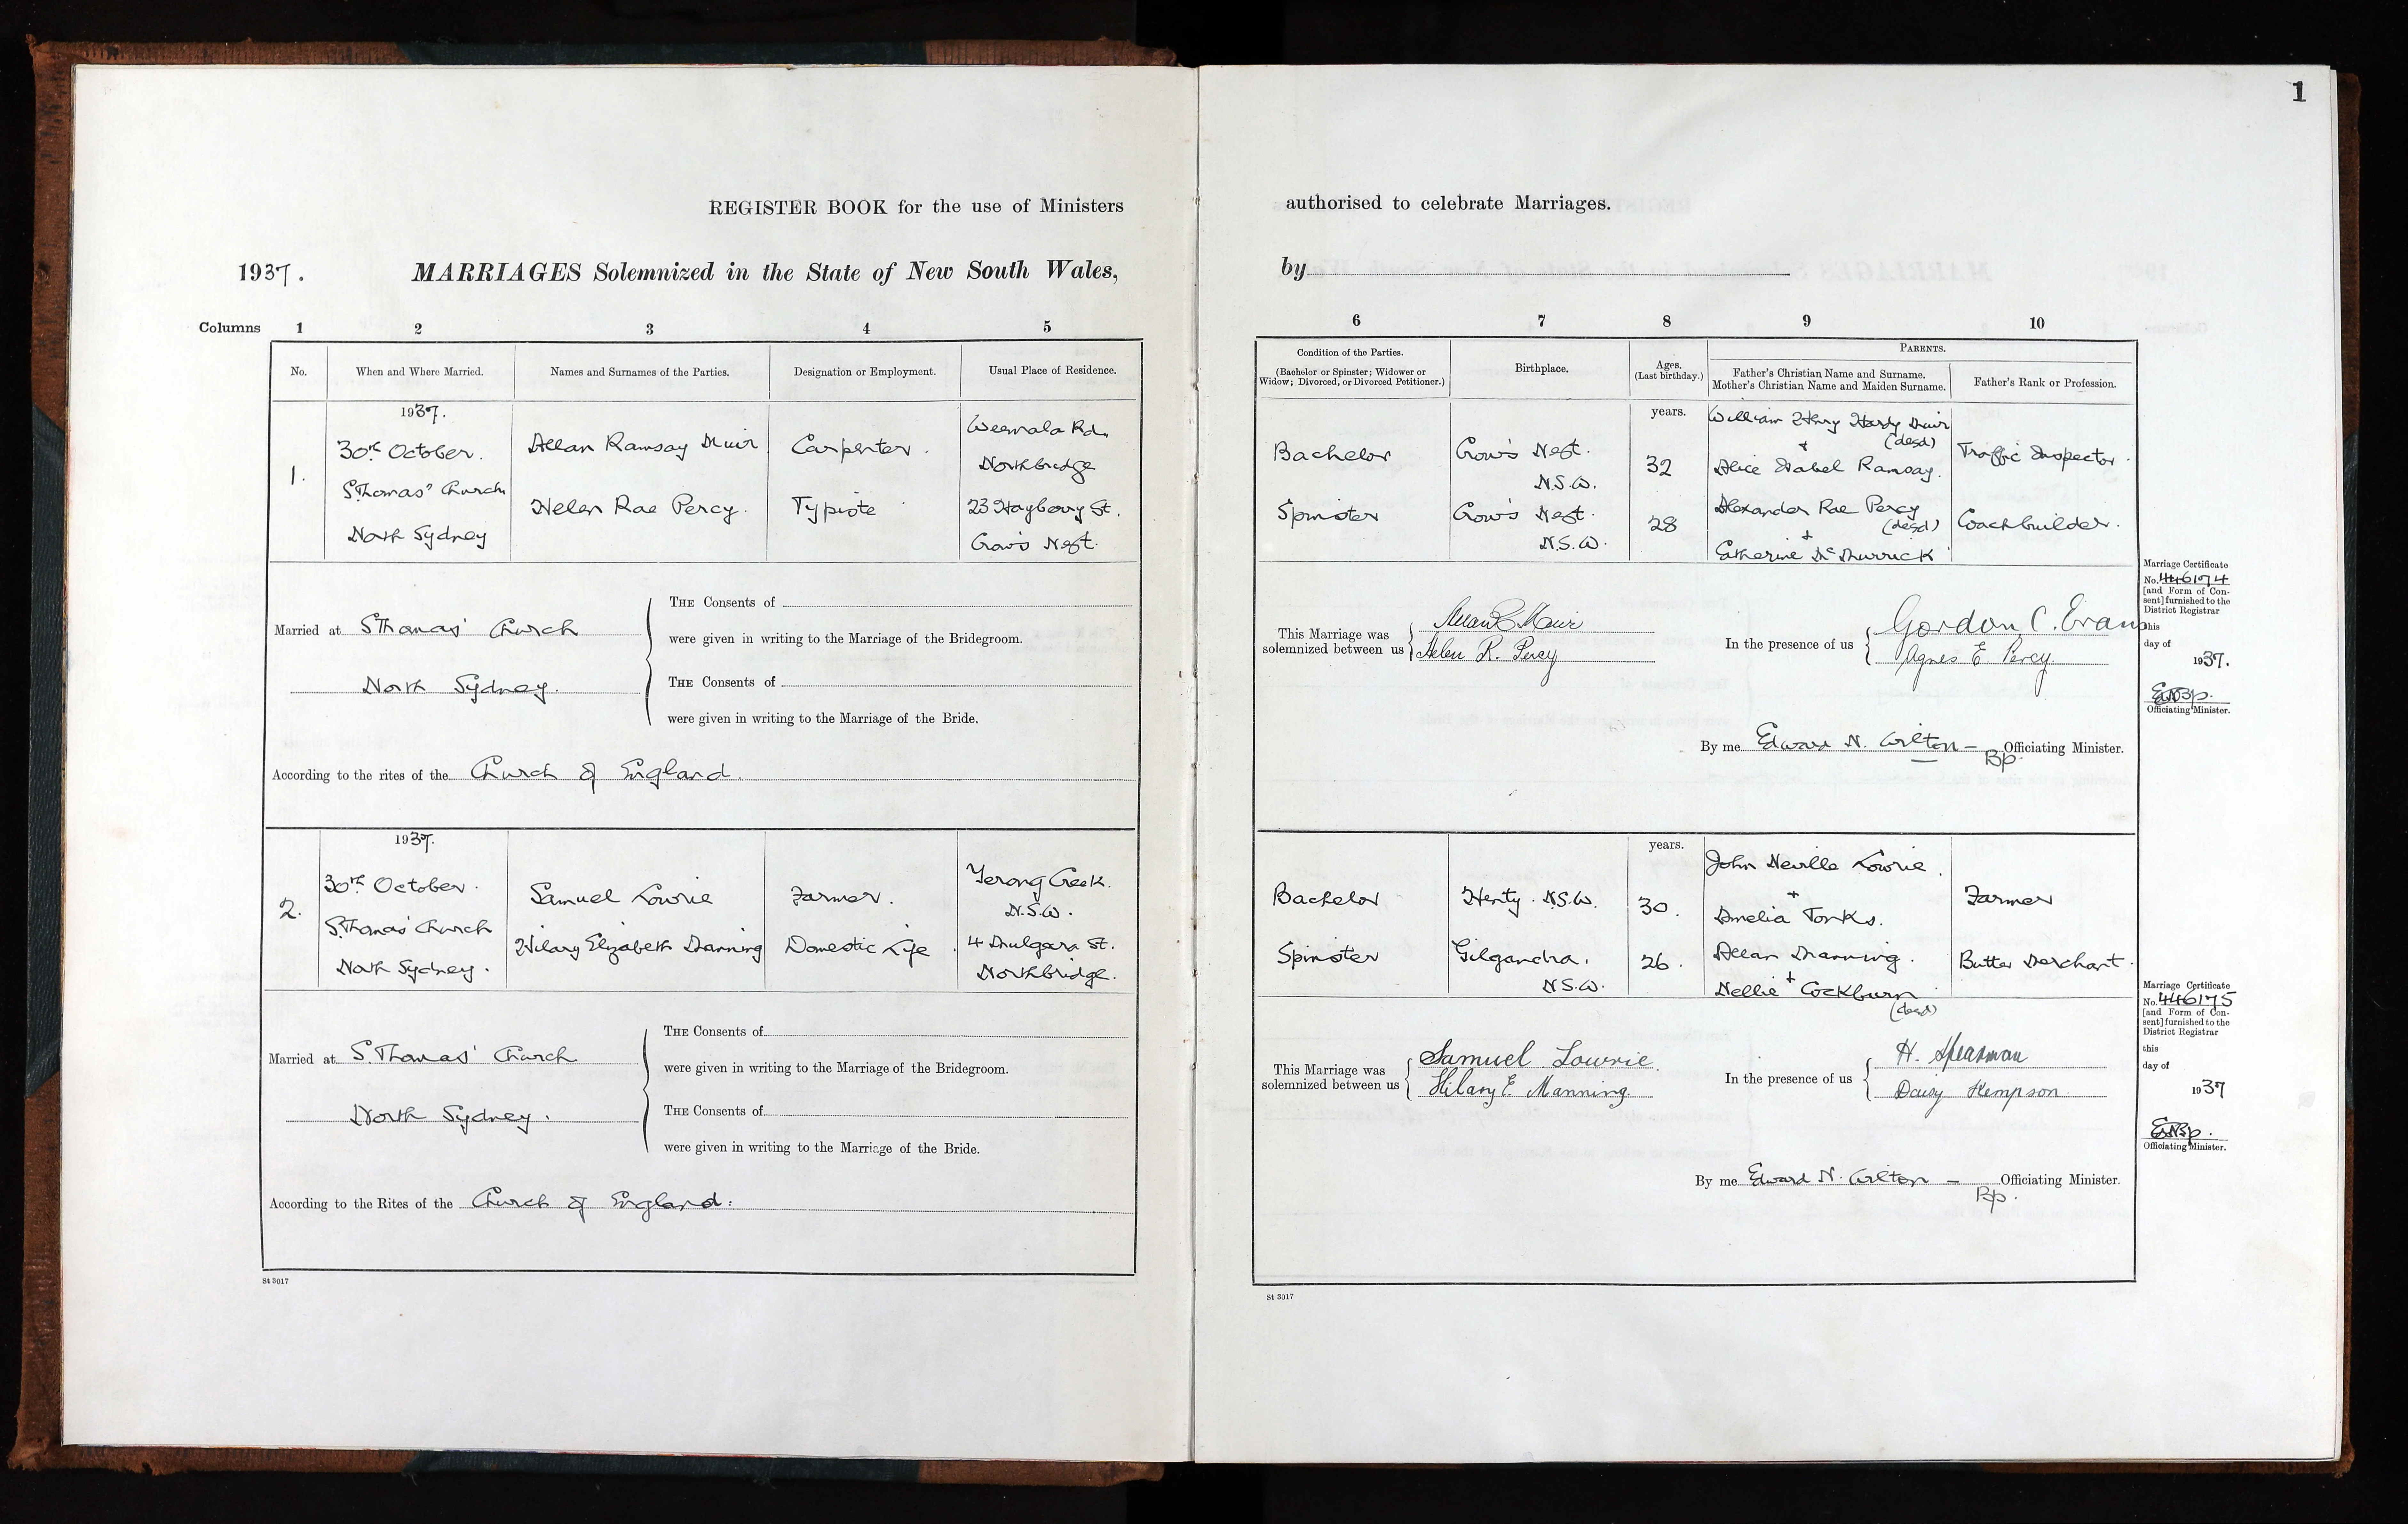 1
REGISTER BOOK for the use of Ministers authorised to celebrate Marriages.
1937. MARRIAGES Solemnized in the State of New South Wales, by
Columns 1 2 3 4 5 6 7 8 9 10
No. When and Where Married. Names and Surnames of the Parties. Designation or Employment. Usual Place of Residence.
Condition of the Parties.
(Bachelor or Spinster; Widower or
Widow; Divorced, or Divorced Petitioner.)
Birthplace.
Ages.
(Last birthday.)
PARENTS.
Father's Christian Name and Surname.
Mother's Christian Name and Maiden Surname.
Father's Rank or Profession.
1.
1937.
30th October.
S. Thomas' Church
North Sydney
Allan Ramsay Muir
Helen Rae Percy.
Carpenter.
Typiste
Weemala Rd.
Northbridge
23 Hayberry St.
Crow's Nest.
Bachelor
Spinster
Crow's Nest.
N.S.W.
Crow's Nest.
N.S.W.
years.
32
28
William Henry Hardy Muir
(decsd)
+
Alice Mabel Ramsay.
Alexander Rae Percy
(decsd)
+
Catherine McMurrick
Traffic Inspector.
Coachbuilder.
Married at S. Thomas' Church
North Sydney.
THE Consents of
were given in writing to the Marriage of the Bridegroom.
THE Consents of
were given in writing to the Marriage of the Bride.
According to the rites of the Church of England.
This Marriage was
solemnized between us
Allan R Muir
Helen R. Percy
In the presence of us
Gordon C. Evans
Agnes E Percy
By me Edward N. Wilton - Bp. Officiating Minister.
Marriage Certificate
No. 446174
[and Form of Con-
sent] furnished to the
District Registrar
this
day of
1937.
Officiating Minister.
2.
1937.
30th October.
S. Thomas' Church
North Sydney.
Samuel Lowrie
Hilary Elizabeth Manning
Farmer.
Domestic Life
Yerong Creek.
N.S.W.
4 Mulgara St.
Northbridge.
Bachelor
Spinster
Henty. N.S.W.
Gilgandra.
N.S.W.
years.
30.
26.
John Neville Lowrie.
+
Amelia Tonks.
Allan Manning.
+
Nellie Cockburn
(decsd)
Farmer
Butter Merchant.
Married at S. Thomas' Church
North Sydney.
THE Consents of
were given in writing to the Marriage of the Bridegroom.
THE Consents of
were given in writing to the Marriage of the Bride.
According to the Rites of the Church of England.
This Marriage was
solemnized between us
Samuel Lowrie.
Hilary E. Manning.
In the presence of us
H. Spearman
Daisy Kempson
By me Edward N. Wilton - Bp. Officiating Minister.
Marriage Certificate
No. 446175
[and Form of Con-
sent] furnished to the
District Registrar
this
day of
1937
Officiating Minister.
St 3017
St 3017